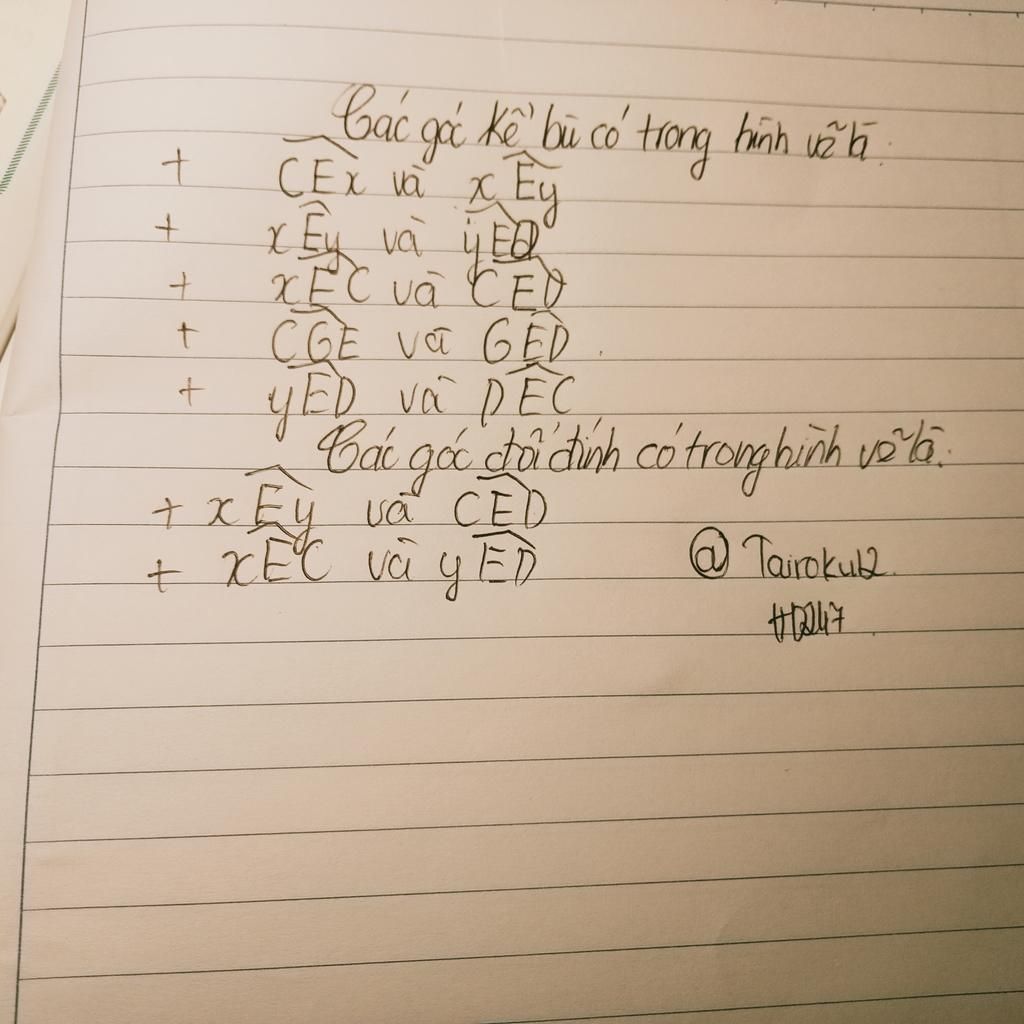 Các góc kề bù có trong hình vẽ là:
+ CEx và xEy
+ xEy và yED
+ xEC và CED
+ CGE và GED.
+ yED và DEC
Các góc đối đỉnh có trong hình vẽ là:
+ xEy và CED
+ xEC và yED
@Tairoku12